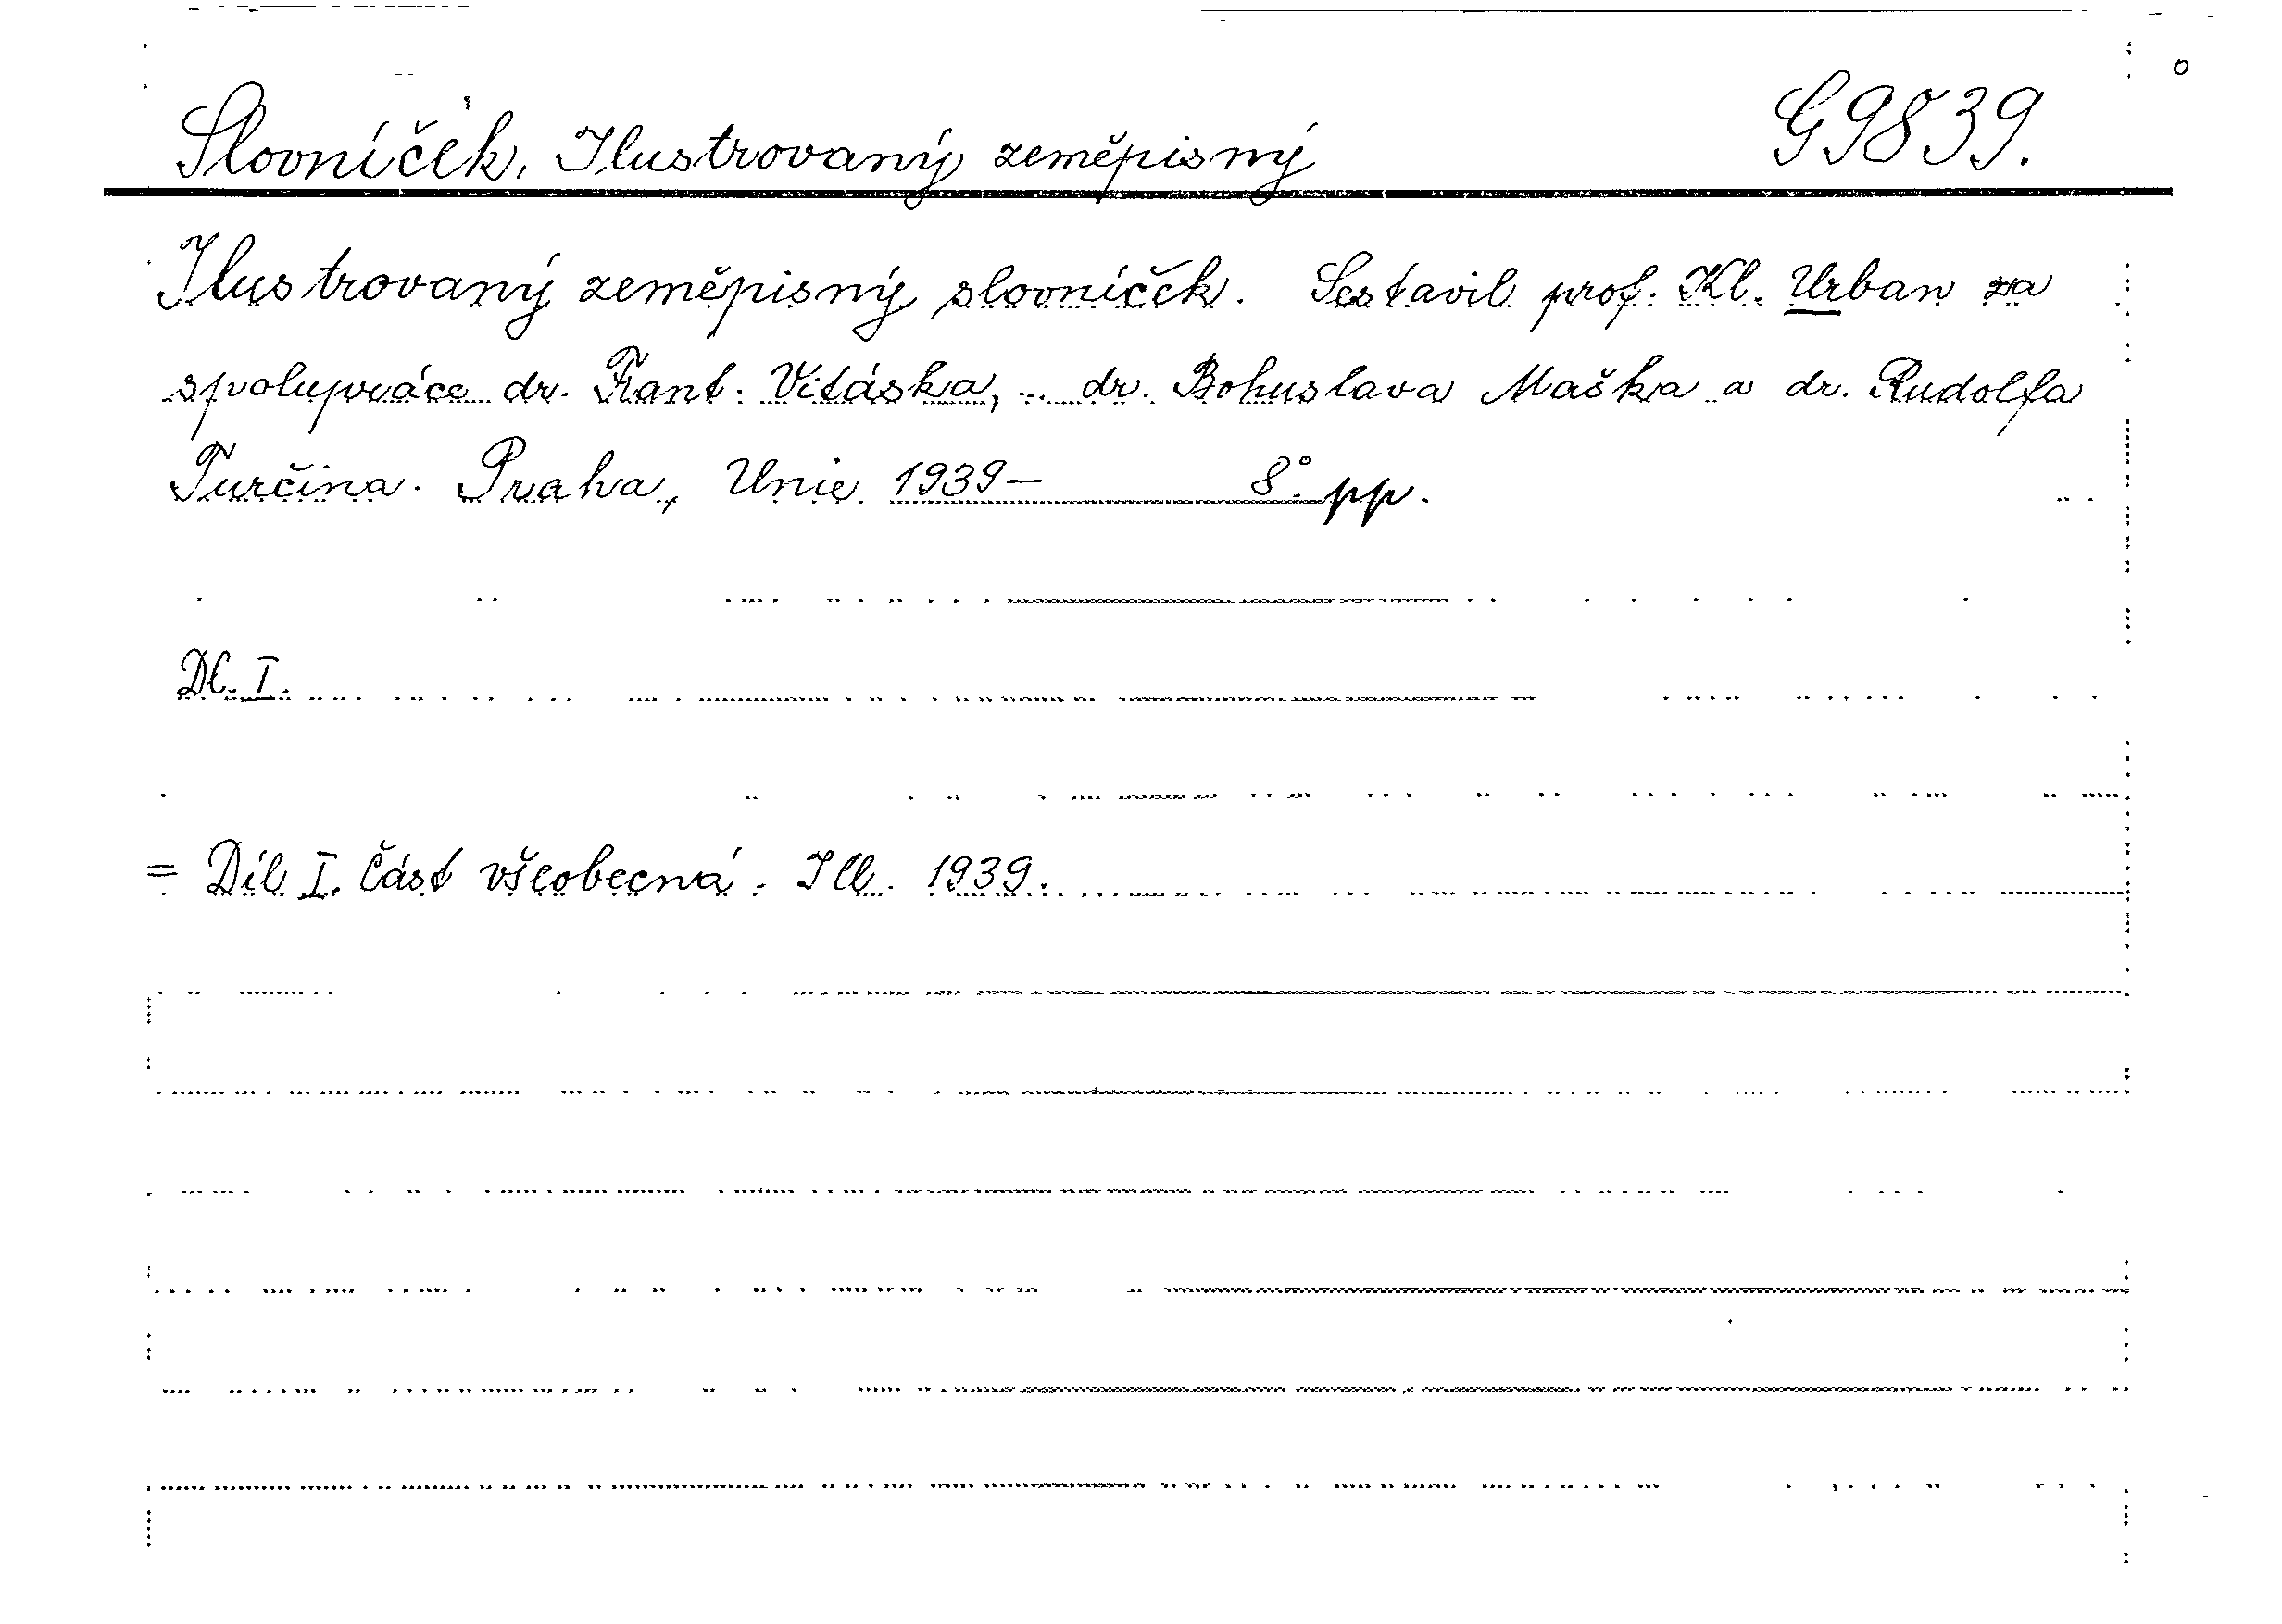 Slovníček, Ilustrovaný zeměpisný G 9839.
Ilustrovaný zeměpisný slovníček. Sestavil prof. Kl. Urban za
spolupráce dr. Frant. Vitáska, dr. Bohuslava Maška a dr. Rudolfa
Turčina. Praha, Unie 1939– 8°. pp.
Dl. I.
= Díl I. Část všeobecná. Ill. 1939.